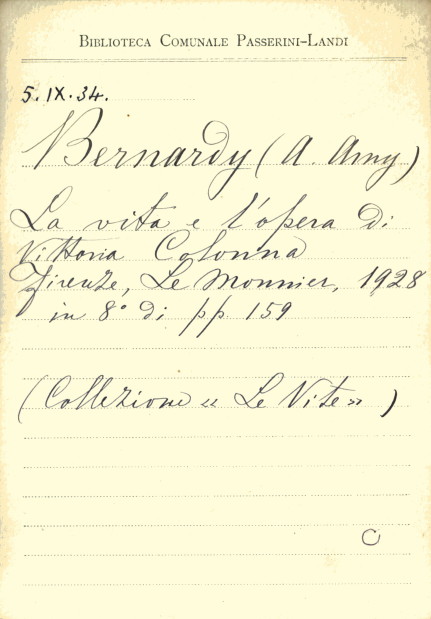 BIBLIOTECA COMUNALE PASSERINI-LANDI
5.IX.34.
Bernardy (A. Amy)
La vita e l'opera di
Vittoria Colonna
Firenze, Le Monnier, 1928
in 8° di pp. 159
(Collezione « Le Vite» )
C